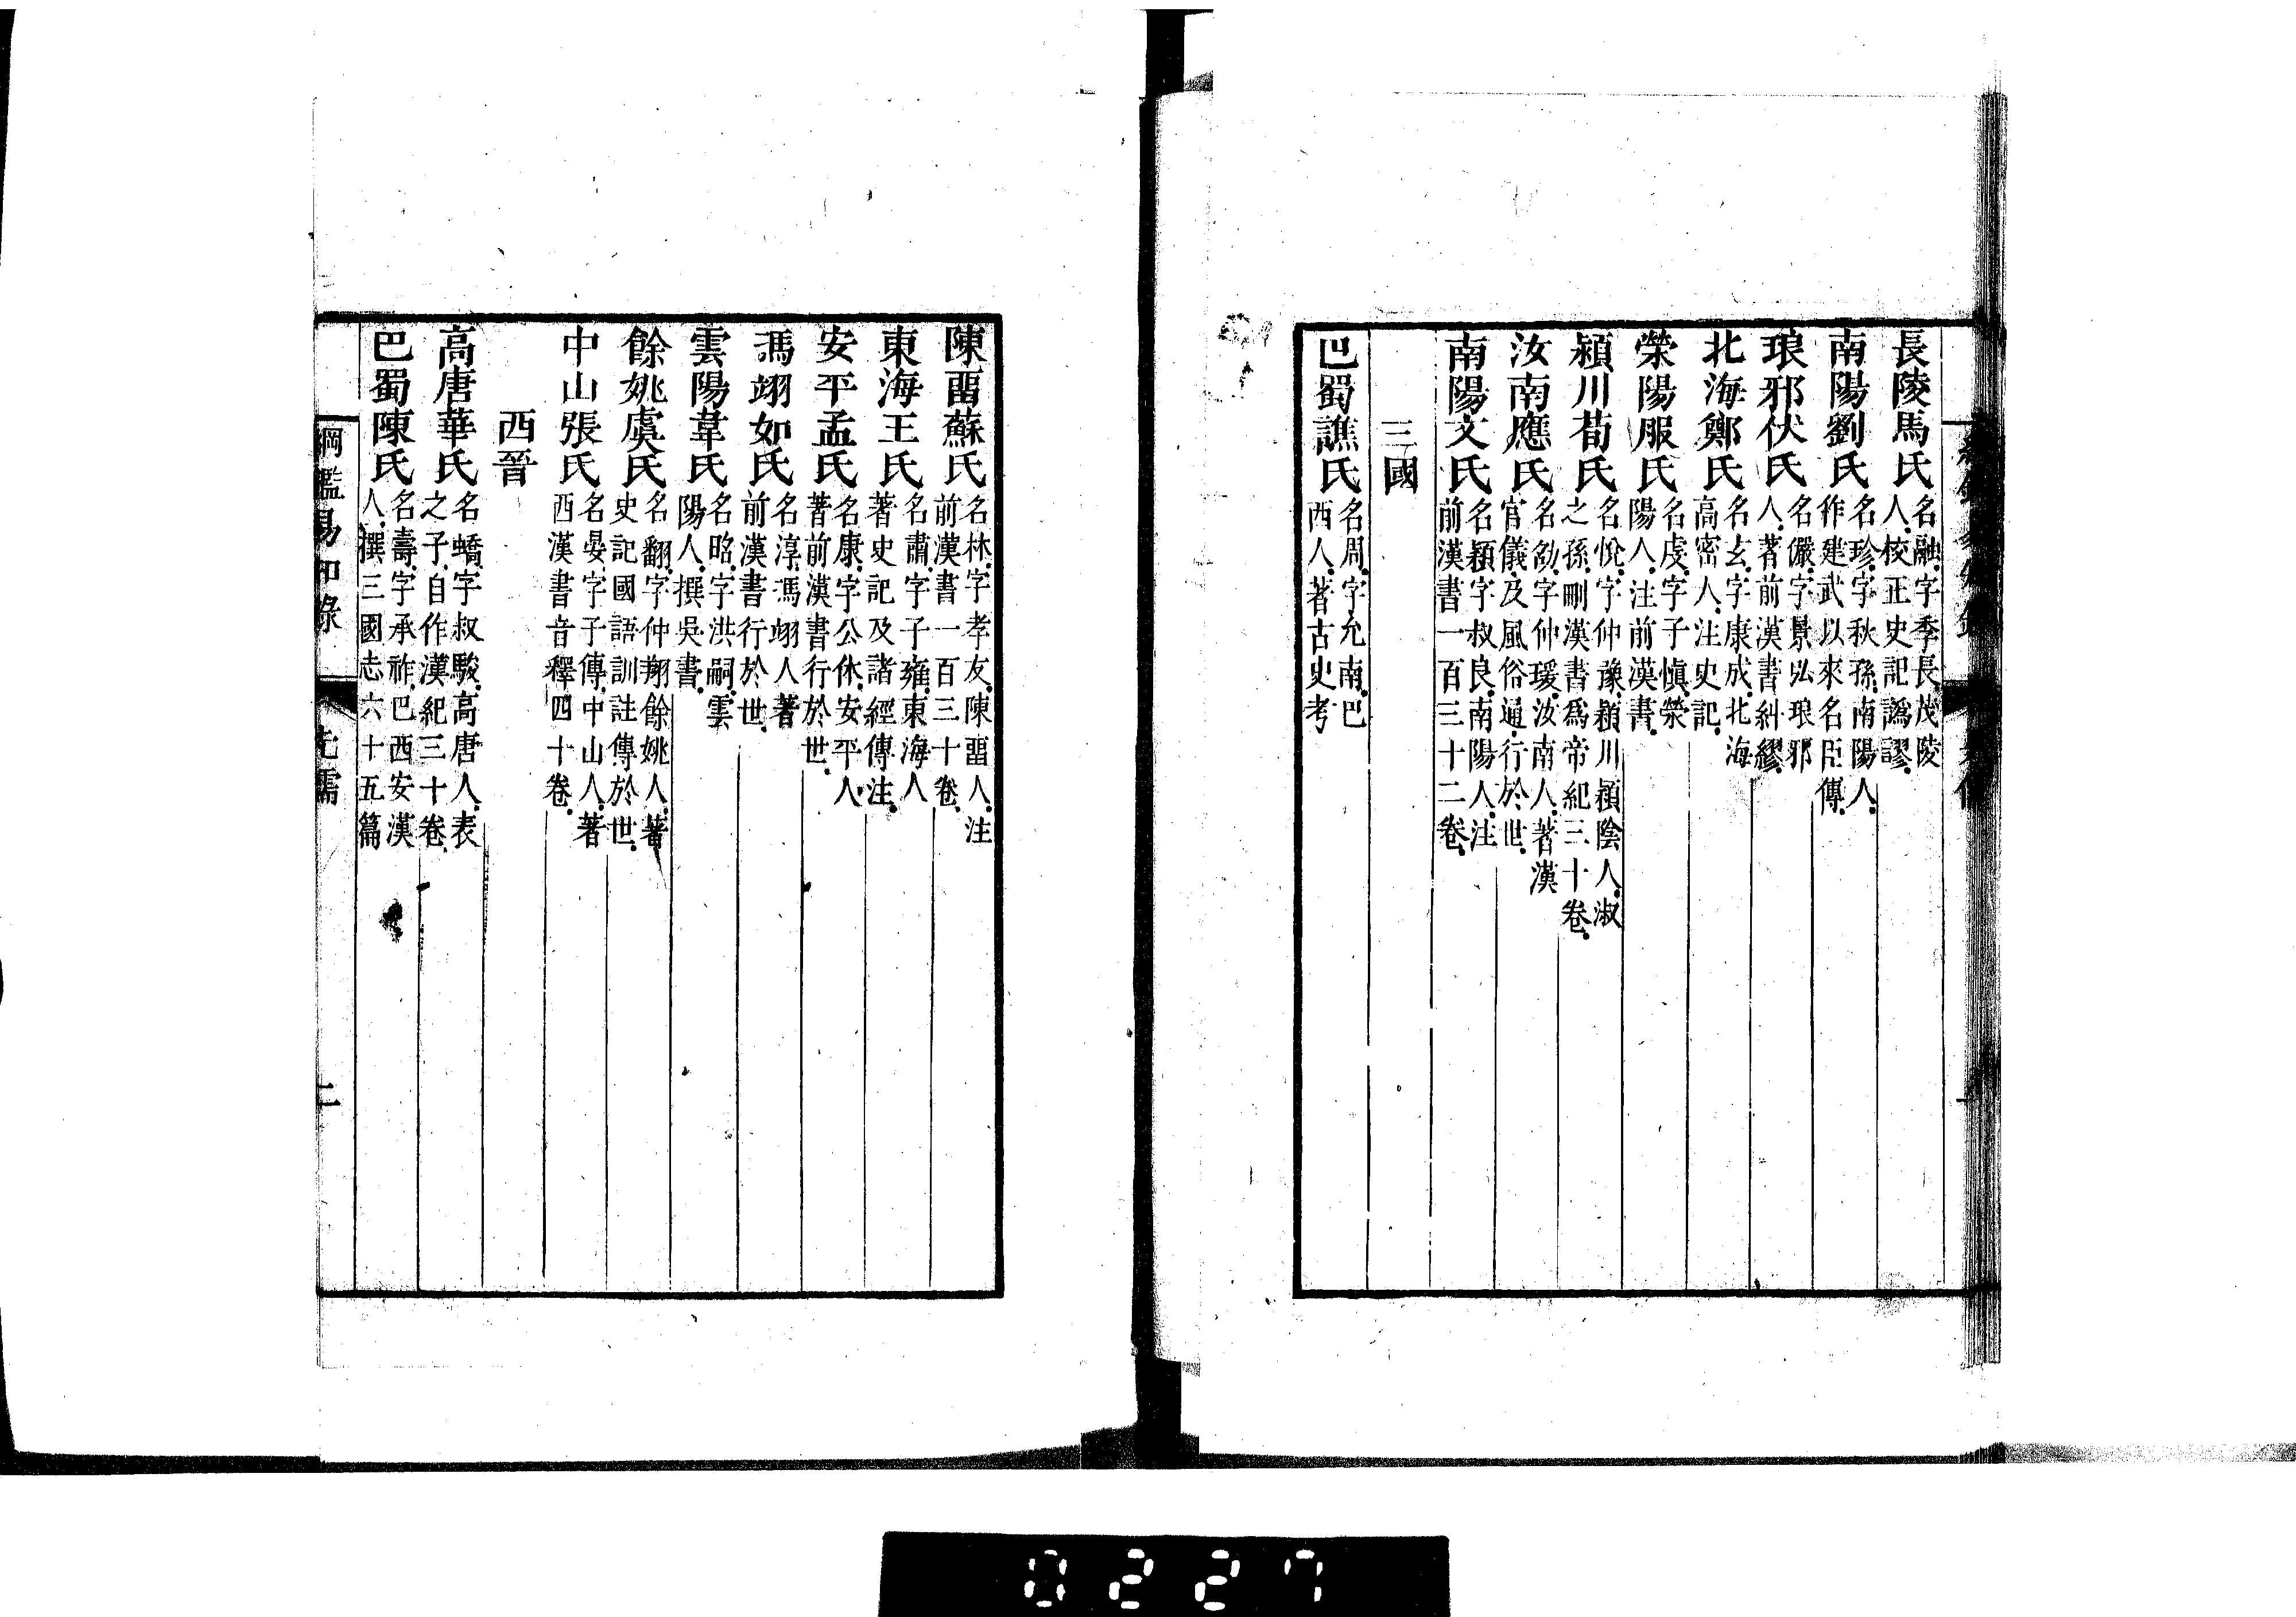 長陵馬氏名融字季長茂陵人校正史記譌謬
南陽劉氏名珍字秋孫南陽人作建武以來名臣傳
琅邪伏氏名儼字景弘琅邪人著前漢書糾繆
北海鄭氏名玄字康成北海高密人注史記
榮陽服氏名虔字子愼滎陽人注前漢書
潁川荀氏名悅字仲豫潁川潁陰人淑之孫刪漢書爲帝紀三十卷
汝南應氏名劭字仲瑗汝南人著漢官儀及風俗通行於世
南陽文氏名穎字叔良南陽人注前漢書一百三十二卷
三國
巴蜀譙氏名周字允南巴西人著古史考
陳畱蘇氏名林字孝友陳畱人注前漢書一百三十卷
東海王氏名肅字子雍東海人著史記及諸經傳注
安平孟氏名康字公休安平人著前漢書行於世
馮翊如氏名淳馮翊人著前漢書行於世
雲陽韋氏名昭字洪嗣雲陽人撰吳書
餘姚虞氏名翻字仲翔餘姚人著史記國語訓註傳於世
中山張氏名晏字子傳中山人著西漢書音釋四十卷
西晉
高唐華氏名嶠字叔駿高唐人表之子自作漢紀三十卷
巴蜀陳氏名壽字承祚巴西安漢人撰三國志六十五篇
綱鑑易知錄
先儒
二
0227